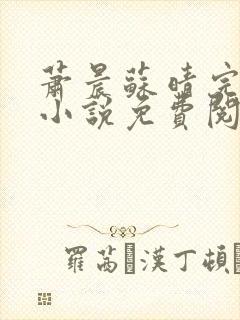 蕭晨蘇晴完
小說免費閱
羅茜 漢丁頓